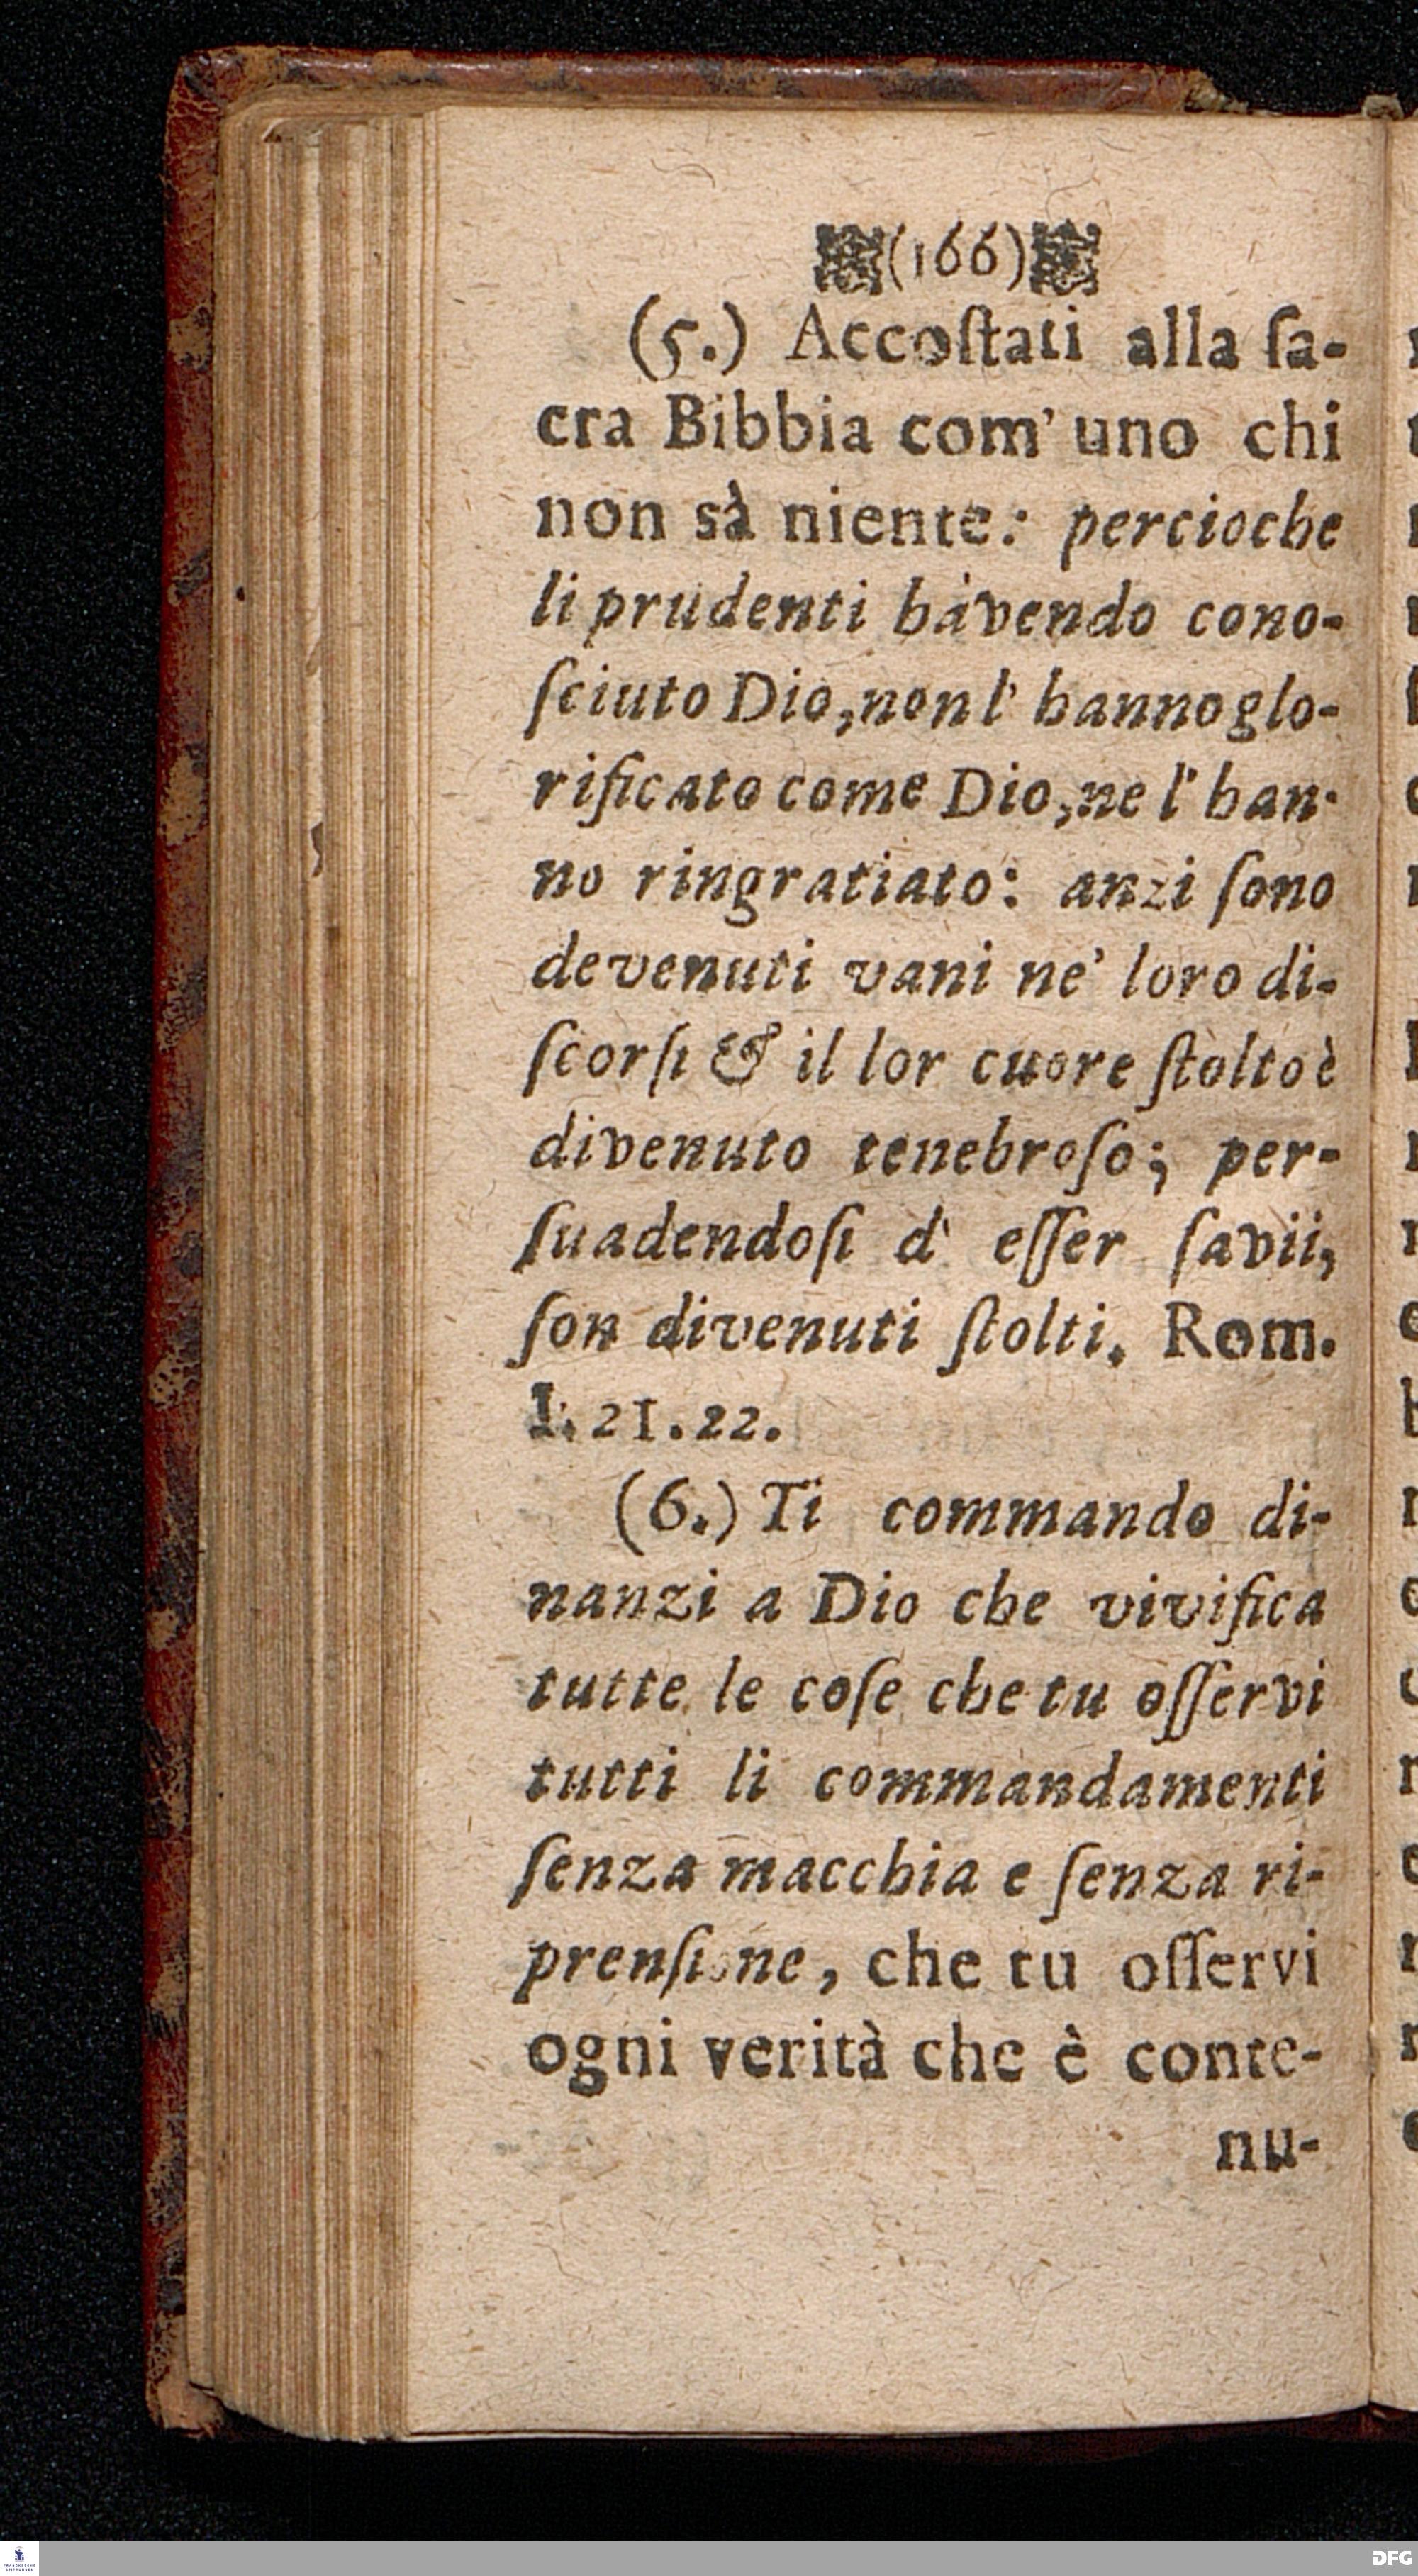 (166)
(5.) Accoſtati alla ſa-
cra Bibbia com' uno chi
non sà niente: percioche
li prudenti hàvendo cono-
ſciuto Dio, non l' hanno glo-
rificato come Dio, ne l' han-
no ringratiato: anzi ſono
devenuti vani ne' loro di-
ſcorſi & il lor cuore ſtolto è
divenuto tenebroſo; per-
ſuadendoſi d' eſſer ſavii,
ſon divenuti ſtolti. Rom.
I. 21. 22.
(6.) Ti commando di-
nanzi a Dio che vivifica
tutte le coſe che tu oſſervi
tutti li commandamenti
ſenza macchia e ſenza ri-
prenſione, che tu oſſervi
ogni verità che è conte-
nu-
FRANCKESCHE
STIFTUNGEN
DFG